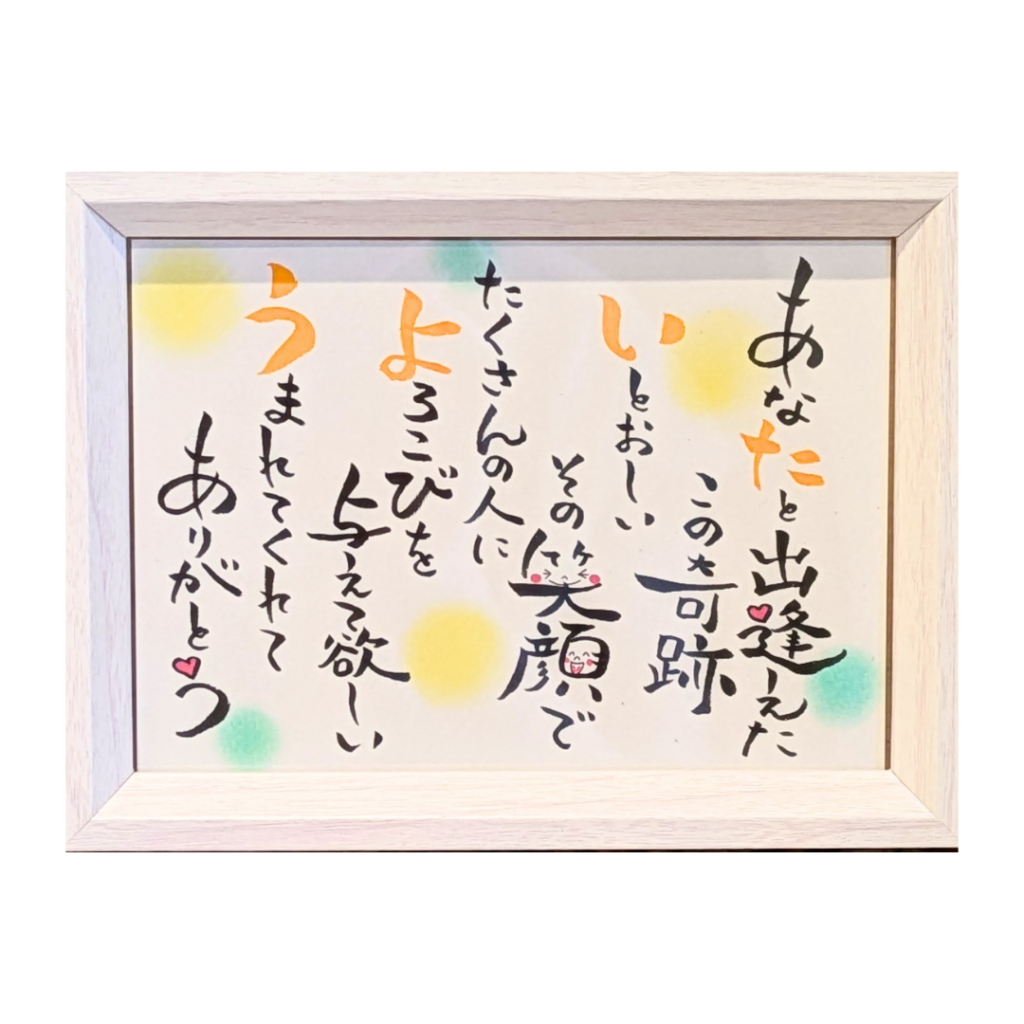 あなたと出逢えた
この奇跡
いとおしい
その笑顔で
たくさんの人に
よろこびを
与えて欲しい
うまれてくれて
ありがとう